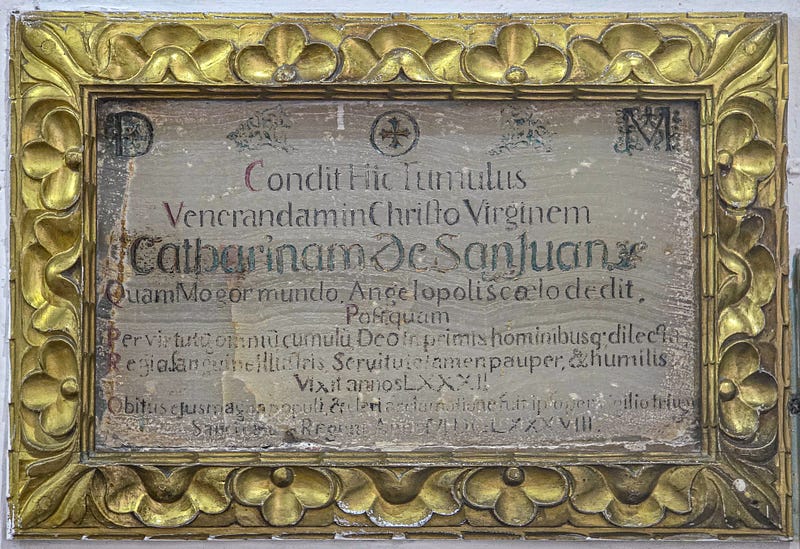 D M
Condit Hic Tumulus
Venerandam in Christo Virginem
Catharinam de San Juan
Quam Mogor mundo, Angelopolis cœlo dedit,
Postquam
Per virtutū omniū cumulū Deo in primis hominibusq; dilecta
Regia sanguine Illustris, Servitute tamen pauper, & humilis
Vixit annos LXXXII
Obitus ejus magna populi, & cleri acclamatione fuit
Regum Anno MDCLXXXVIII.